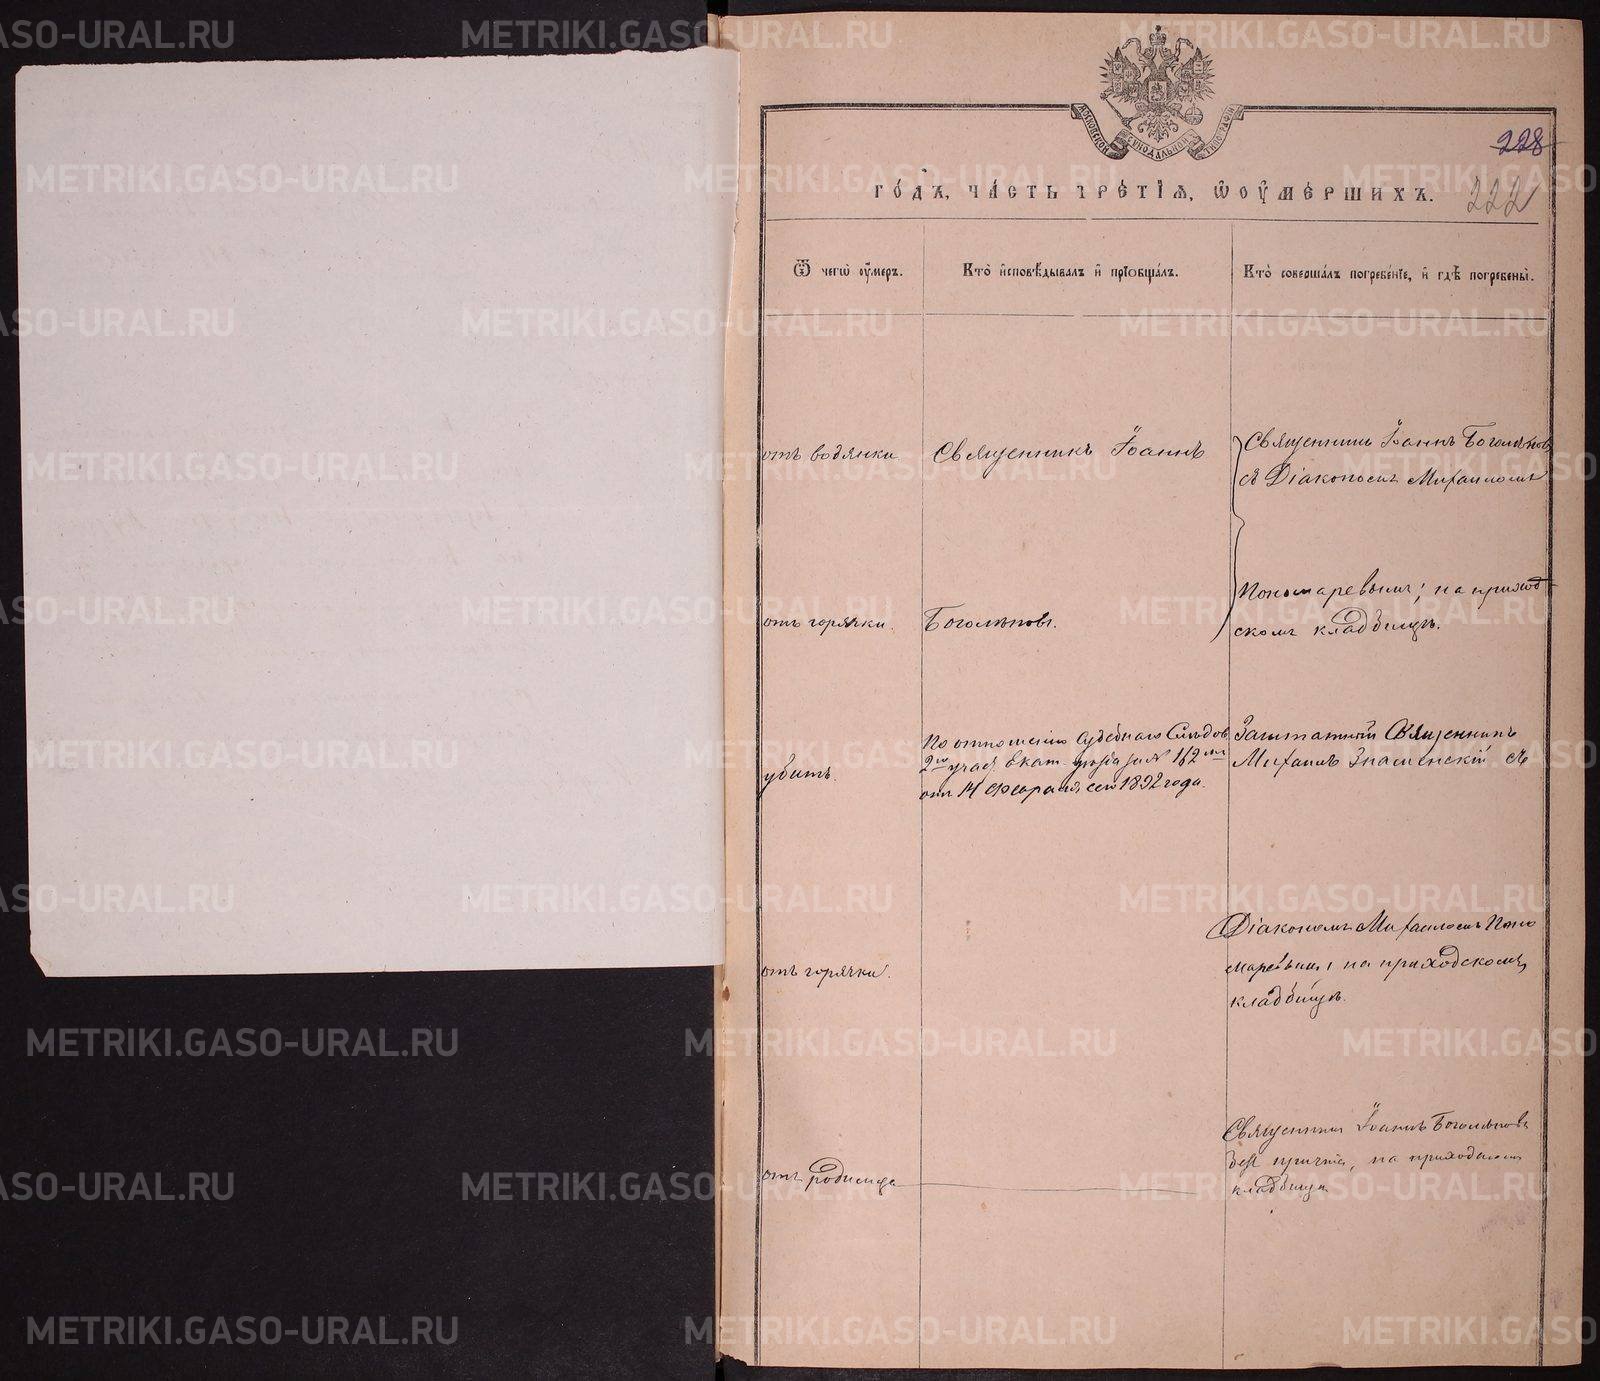 МОСКОВСКОЙ СѴНОДАЛЬНОЙ ТИПОГРАФІИ
228
го́дъ, ча́сть тре́тїѧ, ѡ҆ ᲂу҆ме́ршихъ.
222
Ѿ чегѡ̀ ᲂу҆́меръ.
Кто̀ и҆сповѣ́дывалъ и҆ прїѡбща́лъ.
Кто̀ соверша́лъ погребе́нїе, и҆ гдѣ̀ погребены̀.
отъ водянки
Священникъ Іоаннъ
Священникъ Іоаннъ Боголѣповъ
съ Діакономъ Михаиломъ
отъ горячки.
Боголѣповъ.
Пономаревымъ; на приход-
скомъ кладбищѣ.
убитъ.
По отношенію Судебнаго Слѣдов.
2го участ. Екат. уѣзда за № 162мъ
отъ 14 Февраля сего 1892 года.
Заштатный Священникъ
Михаилъ Знаменскій съ
отъ горячки.
Діакономъ Михаиломъ Поно
маревымъ, на приходскомъ
кладбищѣ.
отъ родимца
Священникъ Іоаннъ Боголѣповъ
безъ причта, на приходскомъ
кладбищѣ
METRIKI.GASO-URAL.RU